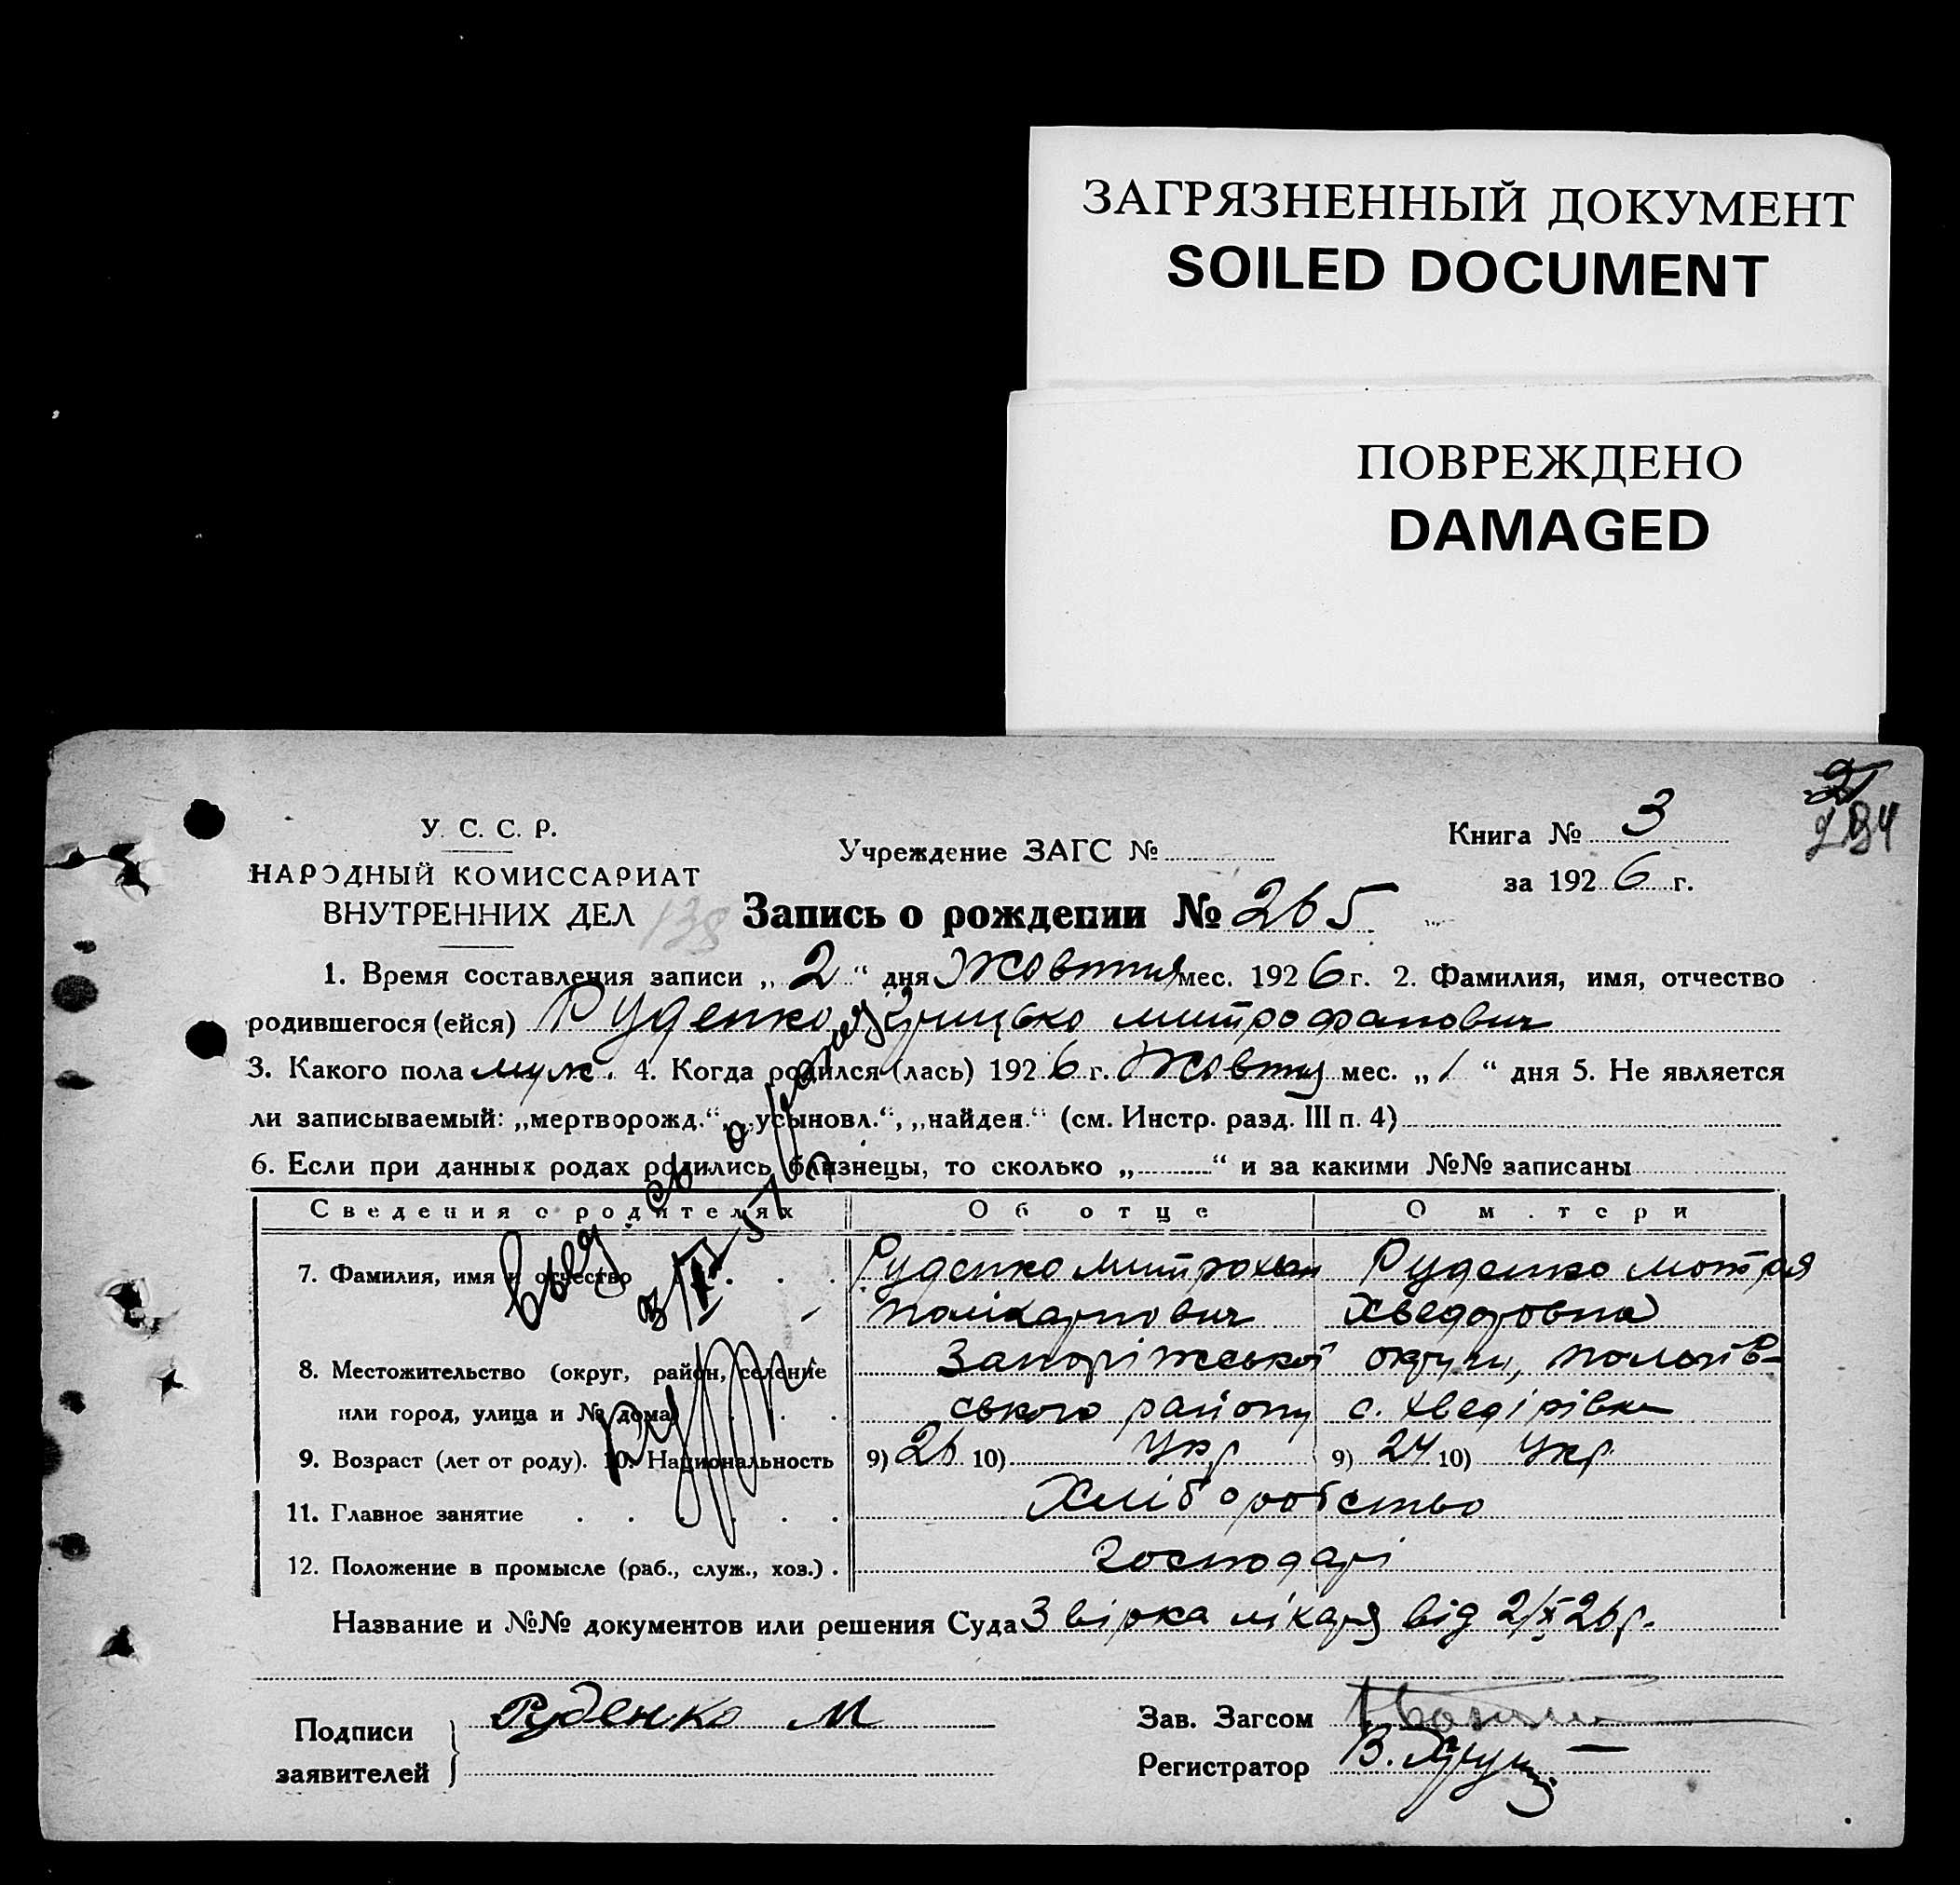 ЗАГРЯЗНЕННЫЙ ДОКУМЕНТ
SOILED DOCUMENT
ПОВРЕЖДЕНО
DAMAGED
У. С. С. Р.
НАРОДНЫЙ КОМИССАРИАТ
ВНУТРЕННИХ ДЕЛ 138
Учреждение ЗАГС №
Книга № 3
за 1926 г.
21
284
Запись о рождении № 265
1. Время составления записи „ 2 “ дня Жовтня мес. 1926 г. 2. Фамилия, имя, отчество
родившегося (ейся) Руденко Грицько Митрофанович
3. Какого пола муж. 4. Когда родился (лась) 1926 г. Жовтня мес. „ 1 “ дня 5. Не является
ли записываемый: „мертворожд.“, „усыновл.“, „найден.“ (см. Инстр. разд. III п. 4)
6. Если при данных родах родились близнецы, то сколько „ “ и за какими №№ записаны
Сведения о родителях Об отце О м.тери
7. Фамилия, имя и отчество Руденко Митрохван Руденко Мотря
Полікарпович Хведоровна
8. Местожительство (округ, район, селение Запоріжської округи, Пологів-
или город, улица и № дома) ського району с. Хведірівка
9. Возраст (лет от роду). 10. Национальность 9) 26 10) Укр 9) 24 10) Укр
11. Главное занятие Хліборобство
12. Положение в промысле (раб., служ., хоз.) господарі
Название и №№ документов или решения Суда Звірка лікаря від 2/X 26 р.
Подписи Руденко М
заявителей
Зав. Загсом
Регистратор В.
Выд. св. о